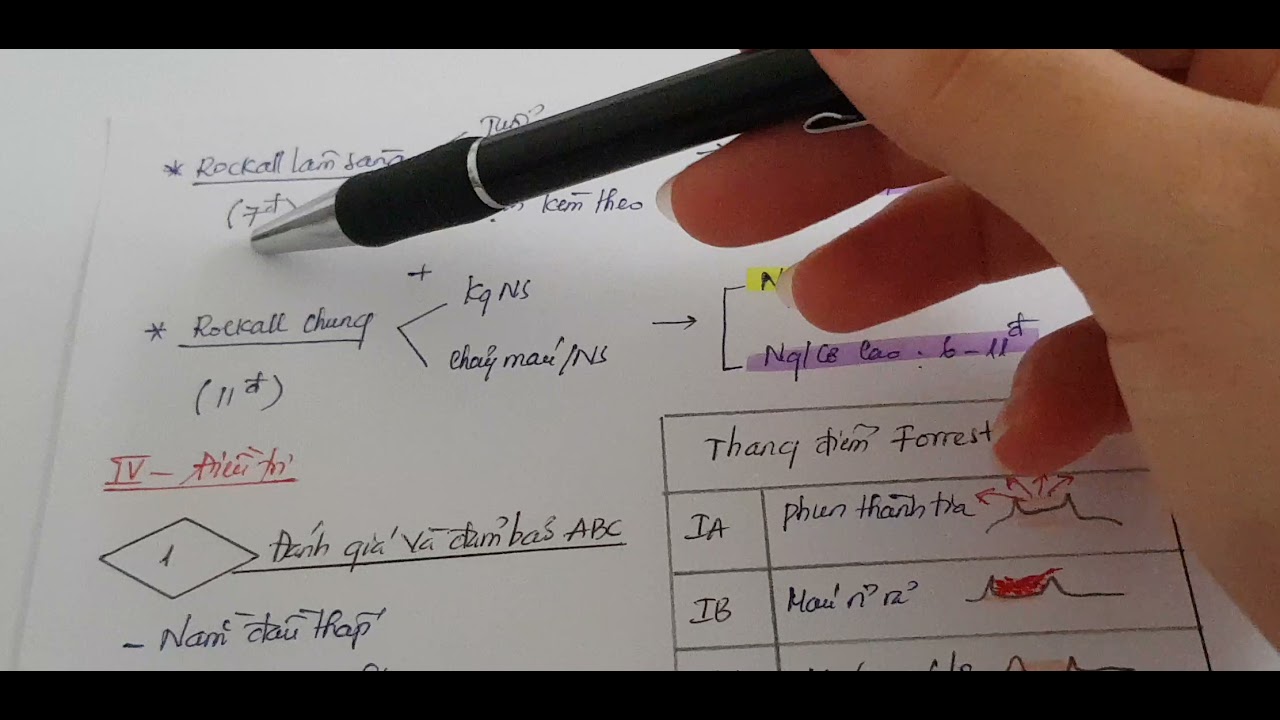 Tuổi
* Rockall lâm sàng
(7đ) kèm theo
+
* Rockall chung
(11đ)
kq NS
chảy máu/NS
→
Ng/cơ cao : 6-11đ
IV - Điều trị
1 Đánh giá và đảm bảo ABC
- Nằm đầu thấp
Thang điểm Forrest
IA phun thành tia
IB Máu rỉ rả